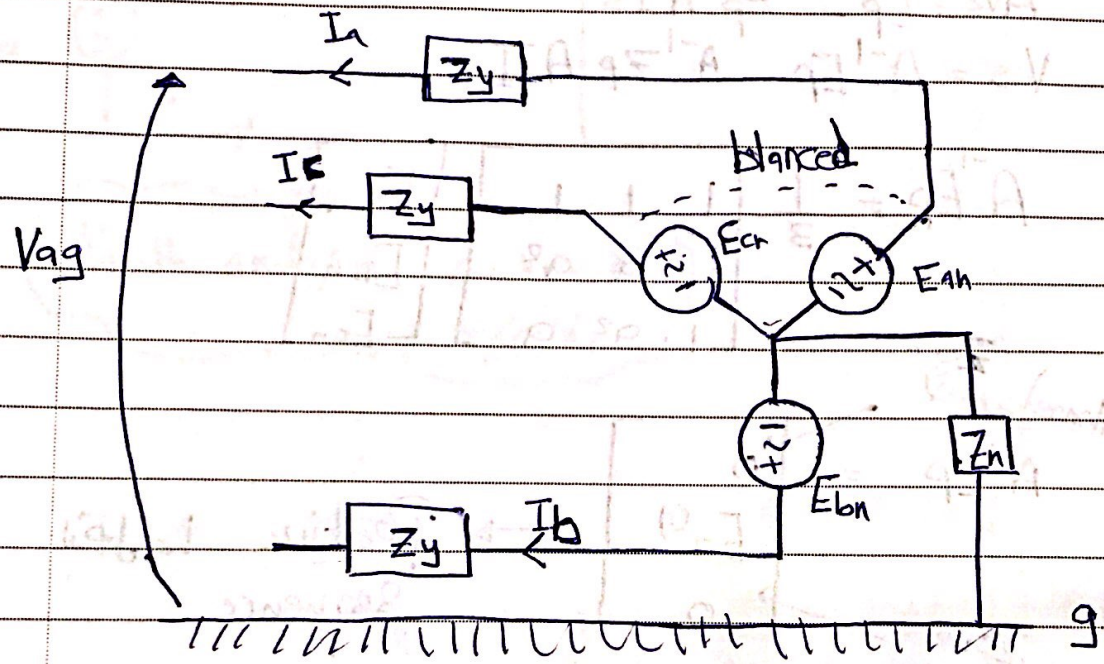 Ia
Zy
blanced
Ic
Zy
Vag
Ecn
+ ~ -
Ean
+ ~ -
Zn
- ~ +
Ebn
Ib
Zy
g